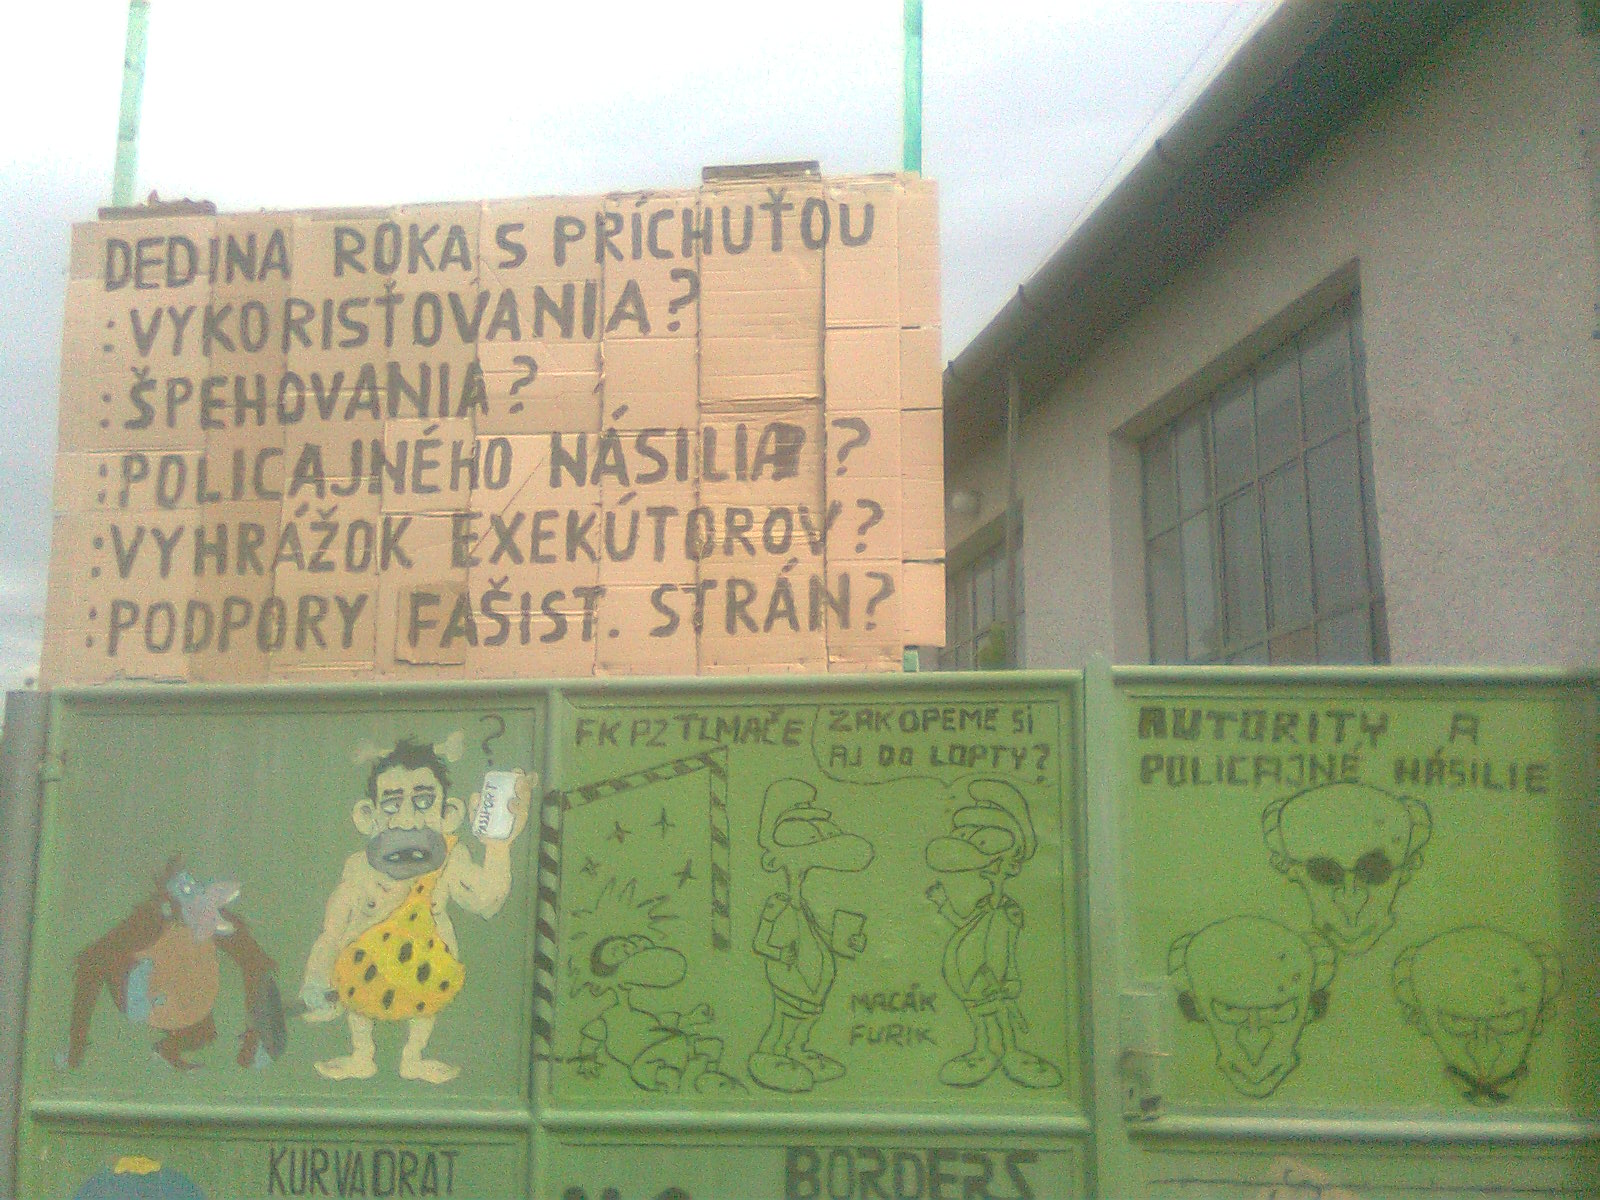 DEDINA ROKA S PRÍCHUŤOU
:VYKORISŤOVANIA?
:ŠPEHOVANIA?
:POLICAJNÉHO NÁSILIA?
:VYHRÁŽOK EXEKÚTOROV?
:PODPORY FAŠIST. STRÁN?
?
PASSPORT
FK PZ TLMAČE
ZAKOPEME SI
AJ DO LOPTY?
MACÁK
FURIK
AUTORITY A
POLICAJNÉ NÁSILIE
KURVADRAT
BORDERS